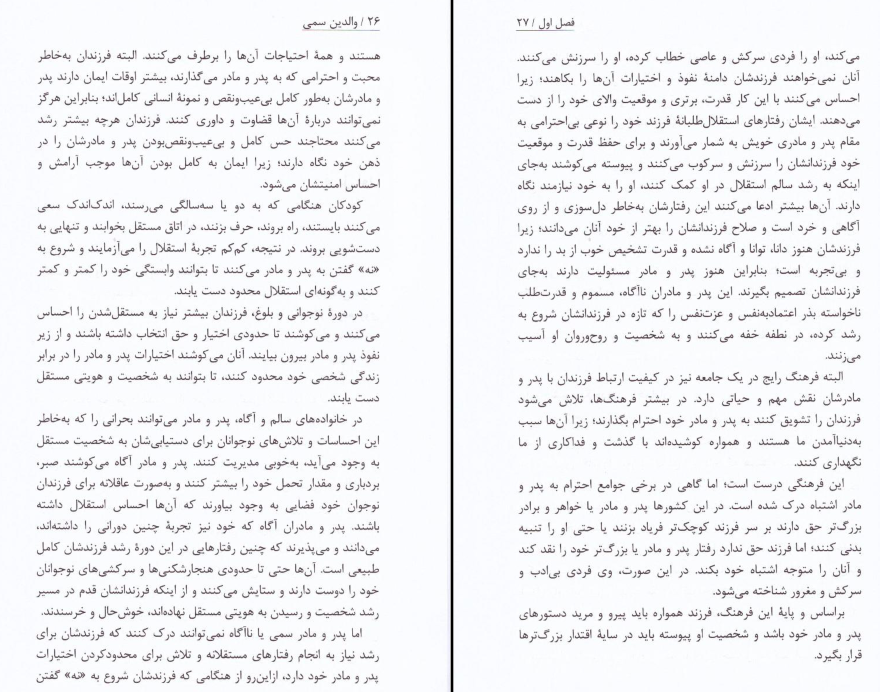 ۲۶ / والدین سمی
هستند و همهٔ احتیاجات آن‌ها را برطرف می‌کنند. البته فرزندان به‌خاطر
محبت و احترامی که به پدر و مادر می‌گذارند، بیشتر اوقات ایمان دارند پدر
و مادرشان به‌طور کامل بی‌عیب‌ونقص و نمونهٔ انسانی کامل‌اند؛ بنابراین هرگز
نمی‌توانند دربارهٔ آن‌ها قضاوت و داوری کنند. فرزندان هرچه بیشتر رشد
می‌کنند محتاجند حس کامل و بی‌عیب‌ونقص‌بودن پدر و مادرشان را در
ذهن خود نگاه دارند؛ زیرا ایمان به کامل بودن آن‌ها موجب آرامش و
احساس امنیتشان می‌شود.
کودکان هنگامی که به دو یا سه‌سالگی می‌رسند، اندک‌اندک سعی
می‌کنند بایستند، راه بروند، حرف بزنند، در اتاق مستقل بخوابند و تنهایی به
دست‌شویی بروند. در نتیجه، کم‌کم تجربهٔ استقلال را می‌آزمایند و شروع به
«نه» گفتن به پدر و مادر می‌کنند تا بتوانند وابستگی خود را کمتر و کمتر
کنند و به‌گونه‌ای استقلال محدود دست یابند.
در دورهٔ نوجوانی و بلوغ، فرزندان بیشتر نیاز به مستقل‌شدن را احساس
می‌کنند و می‌کوشند تا حدودی اختیار و حق انتخاب داشته باشند و از زیر
نفوذ پدر و مادر بیرون بیایند. آنان می‌کوشند اختیارات پدر و مادر را در برابر
زندگی شخصی خود محدود کنند، تا بتوانند به شخصیت و هویتی مستقل
دست یابند.
در خانواده‌های سالم و آگاه، پدر و مادر می‌توانند بحرانی را که به‌خاطر
این احساسات و تلاش‌های نوجوانان برای دستیابی‌شان به شخصیت مستقل
به وجود می‌آید، به‌خوبی مدیریت کنند. پدر و مادر آگاه می‌کوشند صبر،
بردباری و مقدار تحمل خود را بیشتر کنند و به‌صورت عاقلانه برای فرزندان
نوجوان خود فضایی به وجود بیاورند که آن‌ها احساس استقلال داشته
باشند. پدر و مادران آگاه که خود نیز تجربهٔ چنین دورانی را داشته‌اند،
می‌دانند و می‌پذیرند که چنین رفتارهایی در این دورهٔ رشد فرزندشان کامل
طبیعی است. آن‌ها حتی تا حدودی هنجارشکنی‌ها و سرکشی‌های نوجوانان
خود را دوست دارند و ستایش می‌کنند و از اینکه فرزندانشان قدم در مسیر
رشد شخصیت و رسیدن به هویتی مستقل نهاده‌اند، خوش‌حال و خرسندند.
اما پدر و مادر سمی یا ناآگاه نمی‌توانند درک کنند که فرزندشان برای
رشد نیاز به انجام رفتارهای مستقلانه و تلاش برای محدودکردن اختیارات
پدر و مادر خود دارد، ازاین‌رو از هنگامی که فرزندشان شروع به «نه» گفتن
فصل اول / ۲۷
می‌کند، او را فردی سرکش و عاصی خطاب کرده، او را سرزنش می‌کنند.
آنان نمی‌خواهند فرزندشان دامنهٔ نفوذ و اختیارات آن‌ها را بکاهند؛ زیرا
احساس می‌کنند با این کار قدرت، برتری و موقعیت والای خود را از دست
می‌دهند. ایشان رفتارهای استقلال‌طلبانهٔ فرزند خود را نوعی بی‌احترامی به
مقام پدر و مادری خویش به شمار می‌آورند و برای حفظ قدرت و موقعیت
خود فرزندانشان را سرزنش و سرکوب می‌کنند و پیوسته می‌کوشند به‌جای
اینکه به رشد سالم استقلال در او کمک کنند، او را به خود نیازمند نگاه
دارند. آن‌ها بیشتر ادعا می‌کنند این رفتارشان به‌خاطر دل‌سوزی و از روی
آگاهی و خرد است و صلاح فرزندانشان را بهتر از خود آنان می‌دانند؛ زیرا
فرزندشان هنوز دانا، توانا و آگاه نشده و قدرت تشخیص خوب از بد را ندارد
و بی‌تجربه است؛ بنابراین هنوز پدر و مادر مسئولیت دارند به‌جای
فرزندانشان تصمیم بگیرند. این پدر و مادران ناآگاه، مسموم و قدرت‌طلب
ناخواسته بذر اعتمادبه‌نفس و عزت‌نفس را که تازه در فرزندانشان شروع به
رشد کرده، در نطفه خفه می‌کنند و به شخصیت و روح‌وروان او آسیب
می‌زنند.
البته فرهنگ رایج در یک جامعه نیز در کیفیت ارتباط فرزندان با پدر و
مادرشان نقش مهم و حیاتی دارد. در بیشتر فرهنگ‌ها، تلاش می‌شود
فرزندان را تشویق کنند به پدر و مادر خود احترام بگذارند؛ زیرا آن‌ها سبب
به‌دنیاآمدن ما هستند و همواره کوشیده‌اند با گذشت و فداکاری از ما
نگهداری کنند.
این فرهنگی درست است؛ اما گاهی در برخی جوامع احترام به پدر و
مادر اشتباه درک شده است. در این کشورها پدر و مادر یا خواهر و برادر
بزرگ‌تر حق دارند بر سر فرزند کوچک‌تر فریاد بزنند یا حتی او را تنبیه
بدنی کنند؛ اما فرزند حق ندارد رفتار پدر و مادر یا بزرگ‌تر خود را نقد کند
و آنان را متوجه اشتباه خود بکند. در این صورت، وی فردی بی‌ادب و
سرکش و مغرور شناخته می‌شود.
براساس و پایهٔ این فرهنگ، فرزند همواره باید پیرو و مرید دستورهای
پدر و مادر خود باشد و شخصیت او پیوسته باید در سایهٔ اقتدار بزرگ‌ترها
قرار بگیرد.